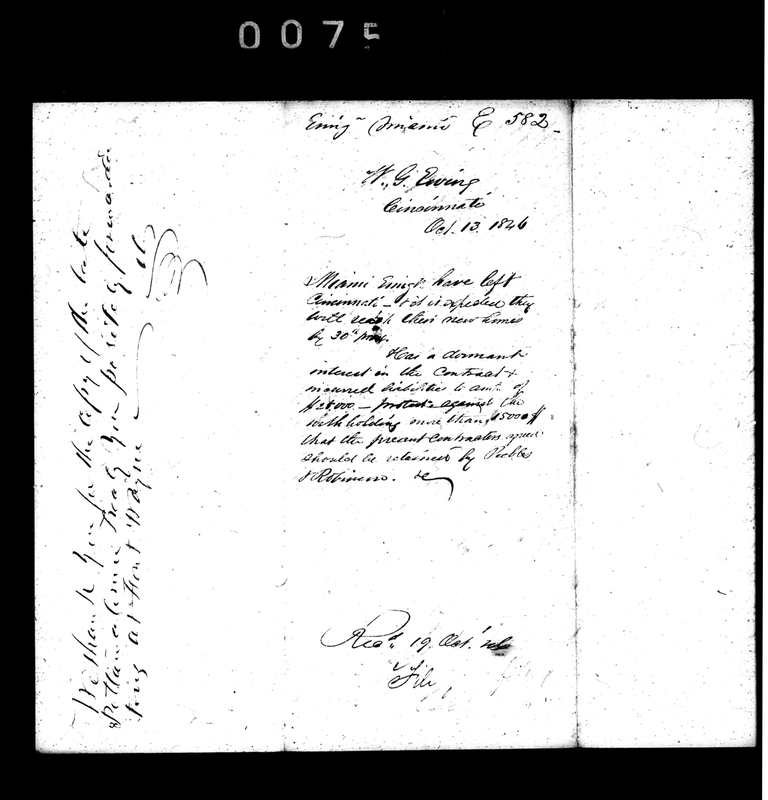 0075
Emign Miami E 582
W. G. Ewing
Cincinnati
Oct. 13. 1846
Miami Emigts have left
Cincinnati – & it is expected they
will reach their new homes
by 30th
Has a dormant
interest in the Contract &
incurred liabilities to amt. of
– protests against the
withholding more than 5000$
that the present contractors agreed
should be retained by Peebles
& Robinson. &c
Recd. 19 Oct.
File
We thank you for the copy of the late
Pottawatomie Treaty you politely forwarded
at Fort Wayne